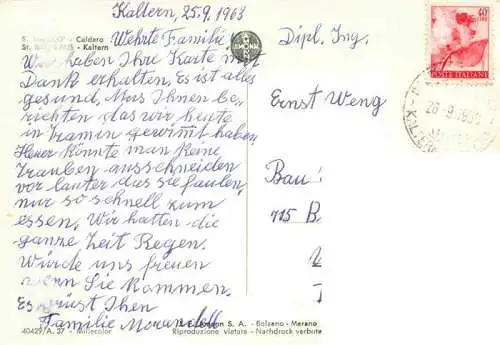 Kaltern, 25.9.1963
S. - Caldaro
St. - Kaltern
Wehrte Familie
Wir haben Ihre Karte mit
Dank erhalten. Es ist alles
gesund, Mus Ihnen be-
richten das wir heute
in Tramen gewimt haben,
Heuer könnte man keine
Trauben ausschneiden
vor lauter das sie faulen,
nur so schnell zum
essen. Wir hatten die
ganze Zeit Regen.
Würde uns freuen
wenn Sie kommen.
Es grüst Ihen
Familie Morandell
40429/A. 37 - Millecolor
AMONN
S. A. - Bolzano - Merano
Riproduzione vietata - Nachdruck verbote
Dipl. Ing.
Ernst Weng
Bau
715 B
40 LIRE
POSTE ITALIANE
26.9.19